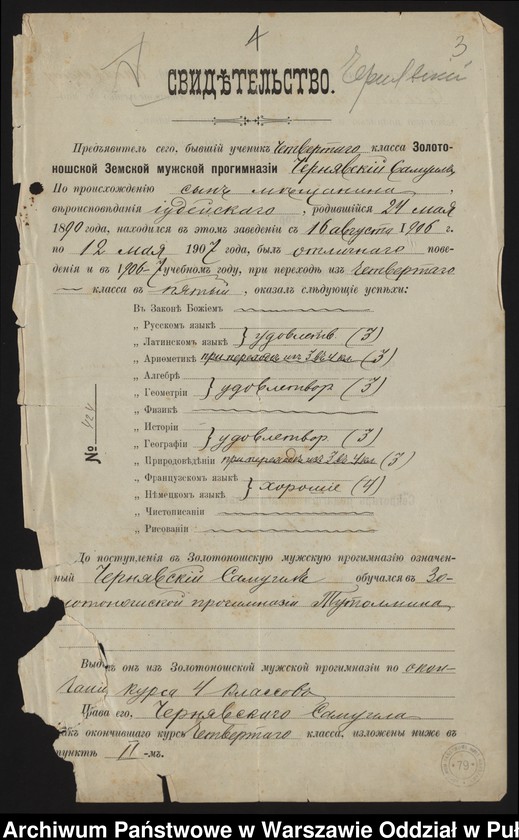 3
Чернявскій
СВИДѢТЕЛЬСТВО.
Предъявитель сего, бывшій ученикъ Четвертаго класса Золото-
ношской Земской мужской прогимназіи Чернявскій Самуилъ
По происхожденію сынъ мѣщанина,
вѣроисповѣданія іудейскаго, родившійся 24 мая
1890 года, находился въ этомъ заведеніи съ 16 августа 1906 г.
по 12 мая 1907 года, былъ отличнаго пове-
денія и въ 1906-7 учебномъ году, при переходѣ изъ Четвертаго
— класса въ пятый, оказалъ слѣдующіе успѣхи:
Въ Законѣ Божіемъ
„ Русскомъ языкѣ
„ Латинскомъ языкѣ } удовлетв. (3)
„ Ариѳметикѣ при переходѣ изъ 3 въ 4 кл (3)
„ Алгебрѣ
„ Геометріи } удовлетвор (3)
„ Физикѣ
„ Исторіи
„ Географіи } удовлетвор. (3)
„ Природовѣдѣніи при переходѣ изъ 3 въ 4 кл (3)
„ Французскомъ языкѣ
„ Нѣмецкомъ языкѣ } хорошіе (4)
„ Чистописаніи
„ Рисованіи
№ 424
До поступленія въ Золотоношскую мужскую прогимназію означен-
ный Чернявскій Самуилъ обучался въ Зо-
лотоношской прогимназіи Тутолмина
Выбылъ онъ изъ Золотоношской мужской прогимназіи по окон-
чаніи курса 4 классовъ
Права его, Чернявскаго Самуила
какъ окончившаго курсъ Четвертаго класса, изложены ниже въ
пунктѣ II-мъ.
79
Archiwum Państwowe w Warszawie Oddział w Puł